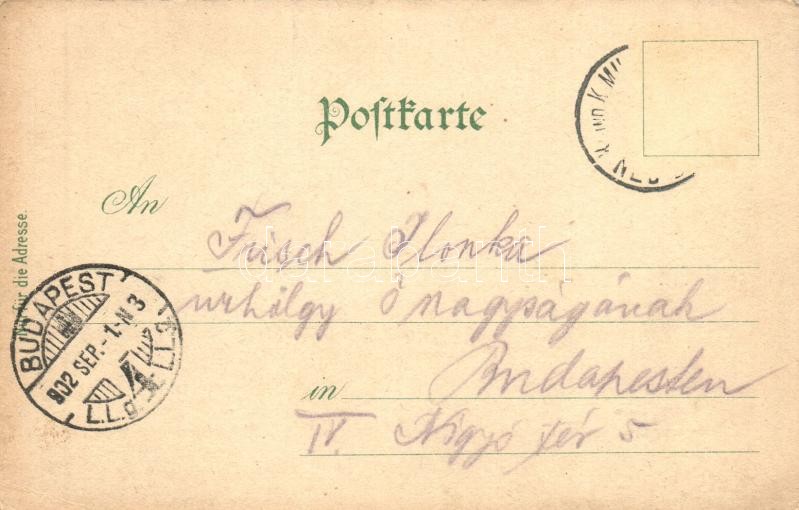 Postkarte
An
Frisch Ilonka
urhölgy Ő nagyságának
in Budapesten
IV. Kigyó tér 5
für die Adresse.
BUDAPEST
902 SEP.-1.-N 3
darabanth